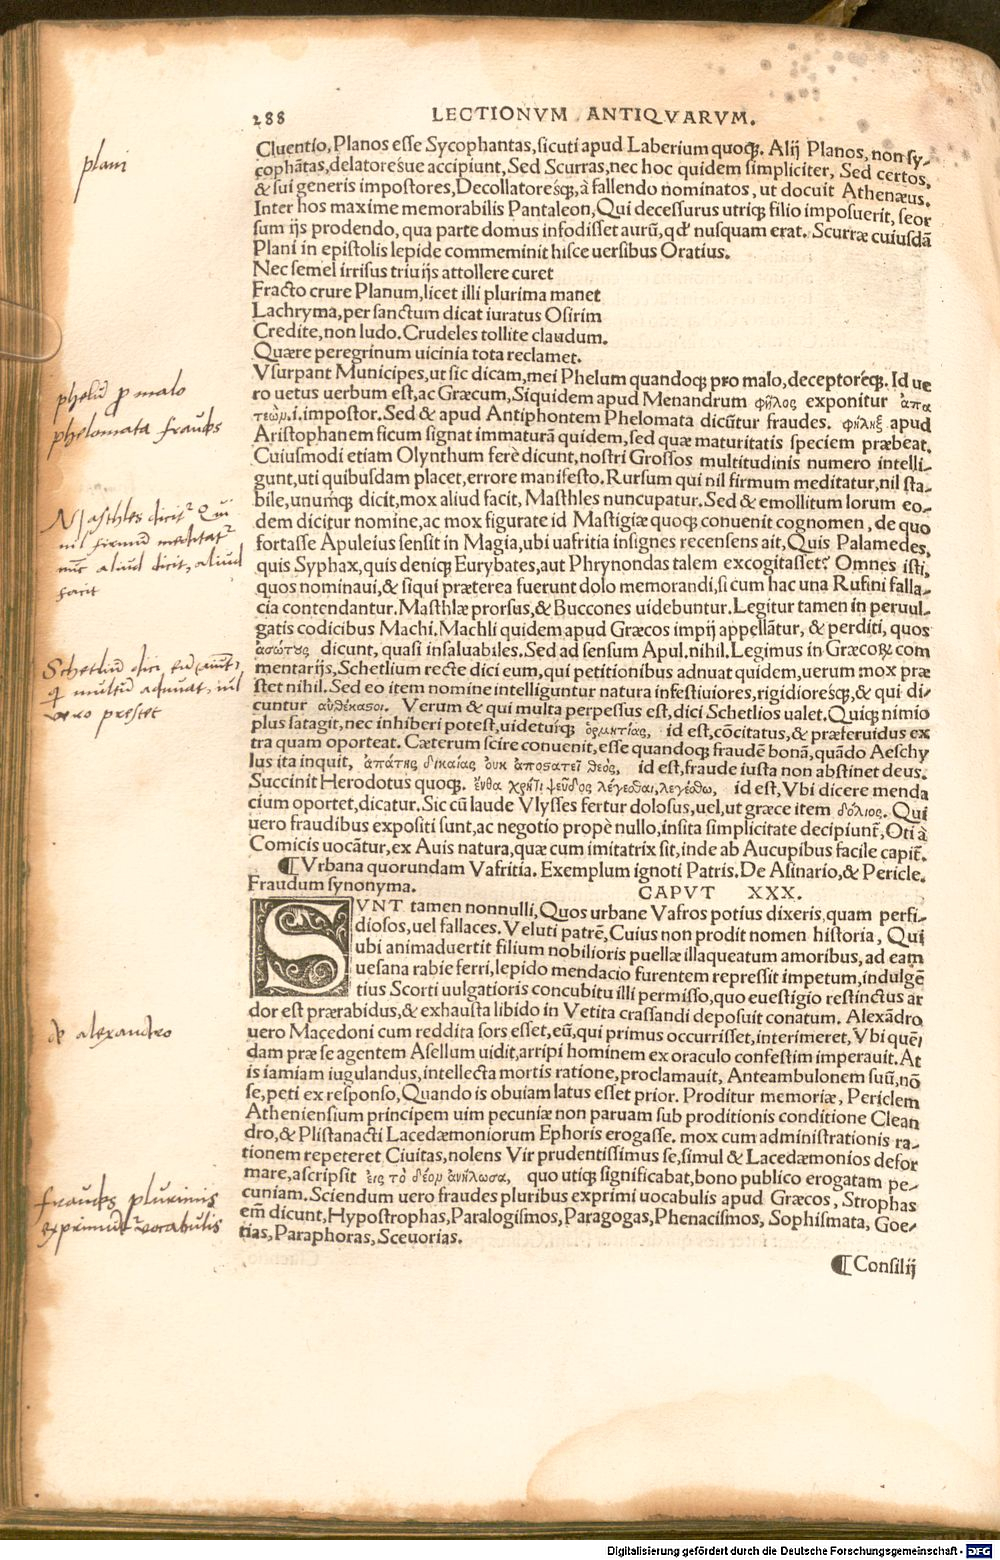 288 LECTIONVM ANTIQVARVM.
plani
Cluentio, Planos esse Sycophantas, sicuti apud Laberium quoqꝫ. Alij Planos, non sy-
cophātas, delatoresue accipiunt, Sed Scurras, nec hoc quidem simpliciter, Sed certos,
& sui generis impostores, Decollatoresqꝫ, à fallendo nominatos, ut docuit Athenæus.
Inter hos maxime memorabilis Pantaleon, Qui decessurus utriqꝫ filio imposuerit, seor
sum ijs prodendo, qua parte domus infodisset aurū, qđ nusquam erat. Scurræ cuiusdā
Plani in epistolis lepide commeminit hisce uersibus Oratius.
Nec semel irrisus triuijs attollere curet
Fracto crure Planum, licet illi plurima manet
Lachryma, per sanctum dicat iuratus Osirim
Credite, non ludo. Crudeles tollite claudum.
Quære peregrinum uicinia tota reclamet.
phelū ꝓ malo
phelomata fraudes
Vsurpant Municipes, ut sic dicam, mei Phelum quandoqꝫ pro malo, deceptoreqꝫ. Id ue
ro uetus uerbum est, ac Græcum, Siquidem apud Menandrum φῆλος exponitur ἀπα
τεὼμ. i. impostor. Sed & apud Antiphontem Phelomata dicūtur fraudes. φήληξ apud
Aristophanem ficum signat immaturā quidem, sed quæ maturitatis speciem præbeat.
Cuiusmodi etiam Olynthum ferè dicunt, nostri Grossos multitudinis numero intelli-
gunt, uti quibusdam placet, errore manifesto. Rursum qui nil firmum meditatur, nil sta-
bile, unumqꝫ dicit, mox aliud facit, Masthles nuncupatur. Sed & emollitum lorum eo-
dem dicitur nomine, ac mox figurate id Mastigiæ quoqꝫ conuenit cognomen, de quo
fortasse Apuleius sensit in Magia, ubi uafritia insignes recensens ait, Quis Palamedes,
quis Syphax, quis deniqꝫ Eurybates, aut Phrynondas talem excogitasset? Omnes isti,
quos nominaui, & siqui præterea fuerunt dolo memorandi, si cum hac una Rufini falla-
cia contendantur. Masthlæ prorsus, & Buccones uidebuntur. Legitur tamen in peruul-
gatis codicibus Machi. Machli quidem apud Græcos impij appellātur, & perditi, quos
ἀσώτους dicunt, quasi insaluabiles. Sed ad sensum Apul. nihil. Legimus in Græcoꝝ com
mentarijs, Schetlium recte dici eum, qui petitionibus adnuat quidem, uerum mox præ
stet nihil. Sed eo item nomine intelliguntur natura infestiuiores, rigidioresqꝫ, & qui di-
cuntur αὐθέκασοι. Verum & qui multa perpessus est, dici Schetlios ualet. Quiqꝫ nimio
plus satagit, nec inhiberi potest, uideturqꝫ ὁρμητίας, id est, cōcitatus, & præferuidus ex
tra quam oporteat. Cæterum scire conuenit, esse quandoqꝫ fraudē bonā, quādo Aeschy
lus ita inquit, ἀπάτης δικαίας ὀυκ ἀποσατεῖ θεὸς, id est, fraude iusta non abstinet deus.
Succinit Herodotus quoqꝫ. ἔνθα χρή τι ψεῦδος λέγεσθαι, λεγέσθω, id est, Vbi dicere menda
cium oportet, dicatur. Sic cū laude Vlysses fertur dolosus, uel, ut græce item δόλιος. Qui
uero fraudibus expositi sunt, ac negotio propè nullo, insita simplicitate decipiunt̃, Oti à
Comicis uocātur, ex Auis natura, quæ cum imitatrix sit, inde ab Aucupibus facile capit̃.
Masthles dicitur Qui
nil firmū meditatur
nūc aliud dicit, aliud
facit
Schetliū dici eū aiūt,
qi multū adnuat, nil
vero prestet
¶ Vrbana quorundam Vafritia. Exemplum ignoti Patris. De Asinario, & Pericle.
Fraudum synonyma. CAPVT XXX.
SVNT tamen nonnulli, Quos urbane Vafros potius dixeris, quam perfi-
diosos, uel fallaces. Veluti patrē, Cuius non prodit nomen historia, Qui
ubi animaduertit filium nobilioris puellæ illaqueatum amoribus, ad eam
uesana rabie ferri, lepido mendacio furentem repressit impetum, indulgē
tius Scorti uulgatioris concubitu illi permisso, quo euestigio restinctus ar
dor est prærabidus, & exhausta libido in Vetita crassandi deposuit conatum. Alexādro
uero Macedoni cum reddita sors esset, eū, qui primus occurrisset, interimeret, Vbi quē
dam præ se agentem Asellum uidit, arripi hominem ex oraculo confestim imperauit. At
is iamiam iugulandus, intellecta mortis ratione, proclamauit, Anteambulonem suū, nō
se, peti ex responso, Quando is obuiam latus esset prior. Proditur memoriæ, Periclem
Atheniensium principem uim pecuniæ non paruam sub proditionis conditione Clean
dro, & Plistanacti Lacedæmoniorum Ephoris erogasse. mox cum administrationis ra-
tionem repeteret Ciuitas, nolens Vir prudentissimus se, simul & Lacedæmonios defor
mare, ascripsit ἐις τὸ δέομ ἀνήλωσα, quo utiqꝫ significabat, bono publico erogatam pe-
cuniam. Sciendum uero fraudes pluribus exprimi uocabulis apud Græcos, Strophas
em̄ dicunt, Hypostrophas, Paralogismos, Paragogas, Phenacismos, Sophismata, Goe-
tias, Paraphoras, Sceuorias.
de alexandro
fraudes plurimis
exprimūtur vocabulis
¶ Consilij
Digitalisierung gefördert durch die Deutsche Forschungsgemeinschaft - DFG